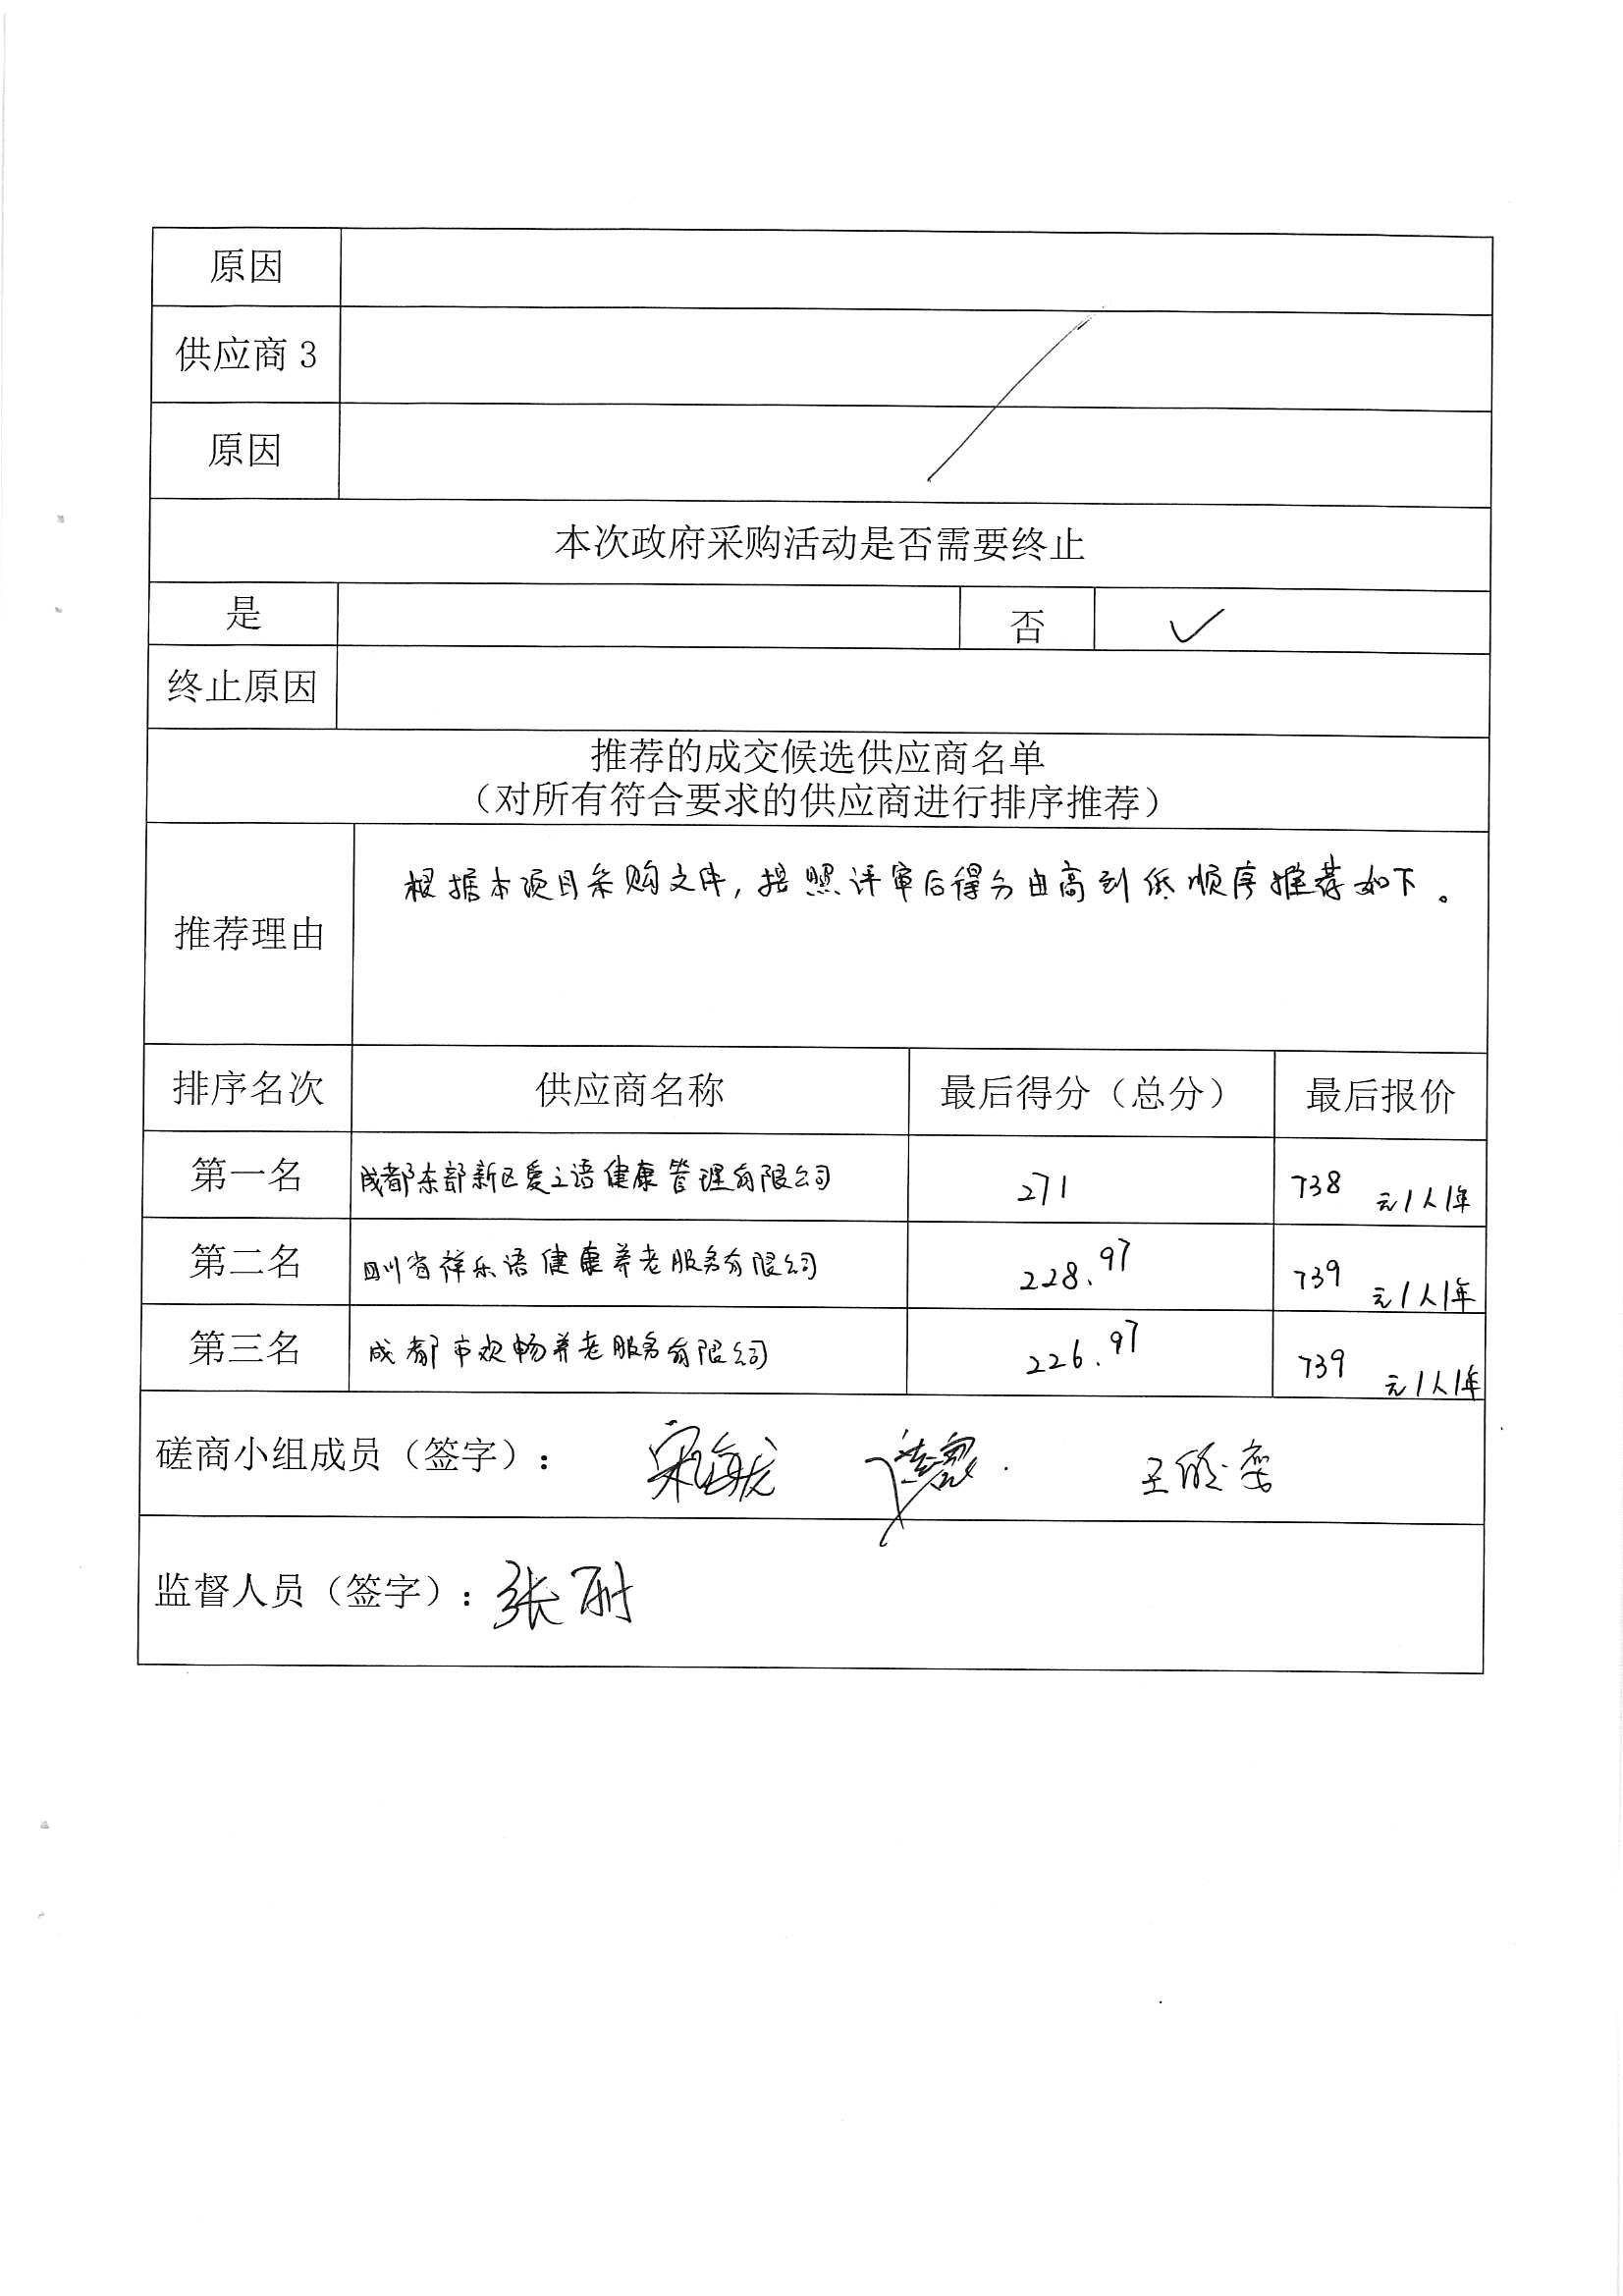 原因
供应商 3
原因
本次政府采购活动是否需要终止
是 否 ✓
终止原因
推荐的成交候选供应商名单
（对所有符合要求的供应商进行排序推荐）
推荐理由 根据本项目采购文件，按照评审后得分由高到低顺序推荐如下。
排序名次 供应商名称 最后得分（总分） 最后报价
第一名 成都东部新区爱之语健康管理有限公司 271 738 元/人/年
第二名 四川省祥乐语健康养老服务有限公司 228.97 739 元/人/年
第三名 成都市欢畅养老服务有限公司 226.97 739 元/人/年
磋商小组成员（签字）：
监督人员（签字）：张